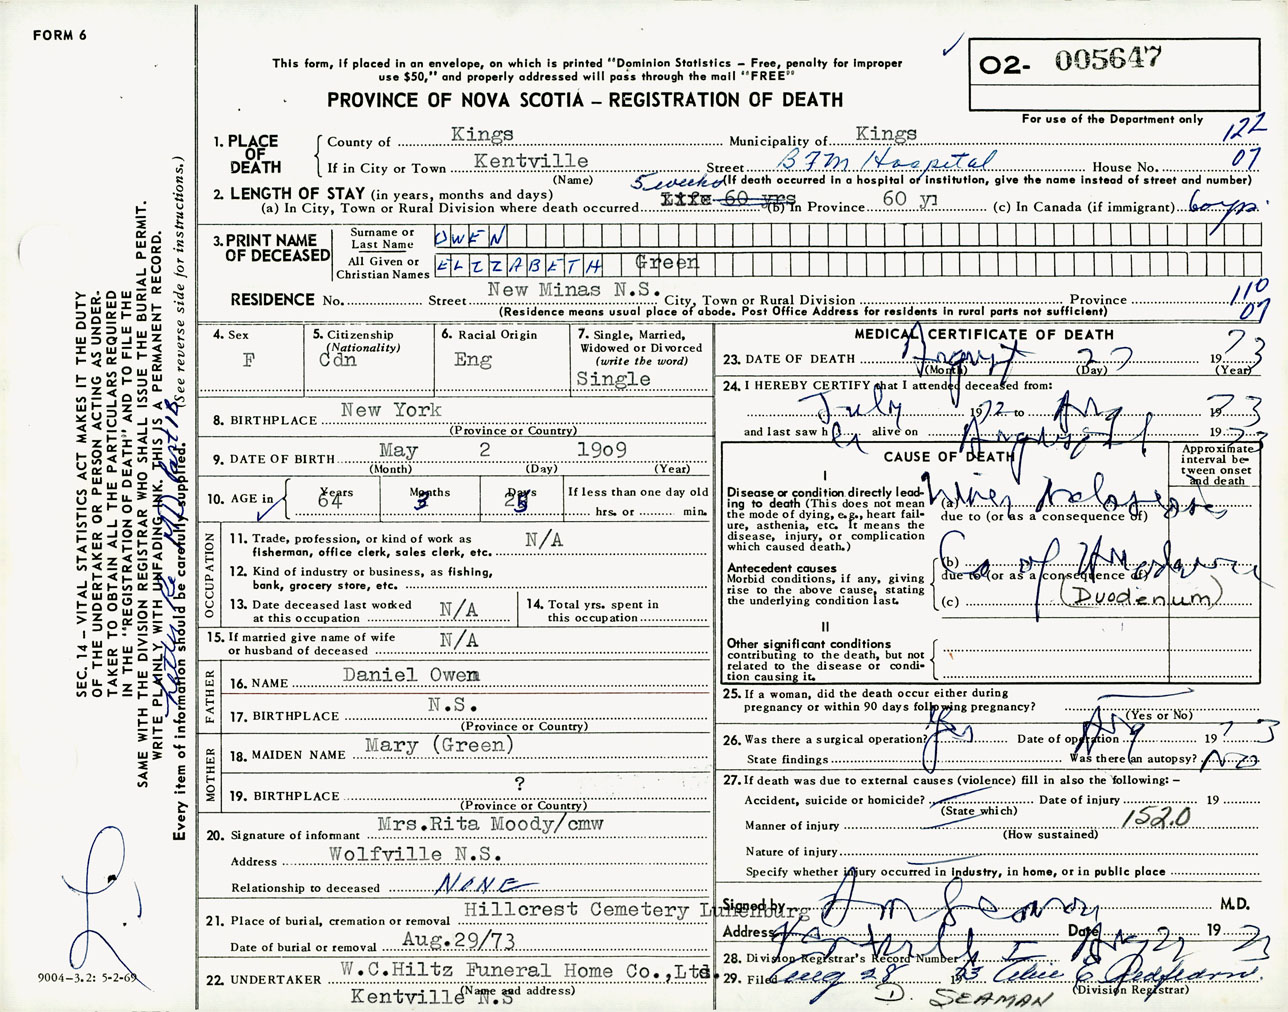 FORM 6
This form, if placed in an envelope, on which is printed "Dominion Statistics – Free, penalty for improper
use $50," and properly addressed will pass through the mail "FREE"
PROVINCE OF NOVA SCOTIA – REGISTRATION OF DEATH
O2- 005647
For use of the Department only
122
07
1. PLACE OF DEATH
County of Kings Municipality of Kings
If in City or Town Kentville Street BFM Hospital House No.
(Name) (If death occurred in a hospital or institution, give the name instead of street and number)
2. LENGTH OF STAY (in years, months and days)
5 weeks
(a) In City, Town or Rural Division where death occurred Life 60 yrs (b) In Province 60 y (c) In Canada (if immigrant) 60 yrs.
3. PRINT NAME OF DECEASED
Surname or Last Name OWEN
All Given or Christian Names ELIZABETH Green
RESIDENCE No. Street New Minas N.S. City, Town or Rural Division Province
110
07
(Residence means usual place of abode. Post Office Address for residents in rural parts not sufficient)
4. Sex F
5. Citizenship (Nationality) Cdn
6. Racial Origin Eng
7. Single, Married, Widowed or Divorced (write the word) Single
8. BIRTHPLACE New York
(Province or Country)
9. DATE OF BIRTH May 2 1909
(Month) (Day) (Year)
10. AGE in Years 64 Months 3 Days 25 If less than one day old
hrs. or min.
OCCUPATION
11. Trade, profession, or kind of work as fisherman, office clerk, sales clerk, etc. N/A
12. Kind of industry or business, as fishing, bank, grocery store, etc.
13. Date deceased last worked at this occupation N/A
14. Total yrs. spent in this occupation
15. If married give name of wife or husband of deceased N/A
FATHER
16. NAME Daniel Owen
17. BIRTHPLACE N.S.
(Province or Country)
MOTHER
18. MAIDEN NAME Mary (Green)
19. BIRTHPLACE ?
(Province or Country)
20. Signature of informant Mrs.Rita Moody/cmw
Address Wolfville N.S.
Relationship to deceased NONE
21. Place of burial, cremation or removal Hillcrest Cemetery Lunenburg
Date of burial or removal Aug.29/73
22. UNDERTAKER W.C.Hiltz Funeral Home Co.,Ltd.
(Name and address)
Kentville N.S
MEDICAL CERTIFICATE OF DEATH
23. DATE OF DEATH August 27 1973
(Month) (Day) (Year)
24. I HEREBY CERTIFY that I attended deceased from:
July 1972 to Aug 1973
and last saw her alive on August 1973
CAUSE OF DEATH
Approximate interval between onset and death
I
Disease or condition directly leading to death (This does not mean the mode of dying, e.g., heart failure, asthenia, etc. It means the disease, injury, or complication which caused death.)
(a)
due to (or as a consequence of)
Antecedent causes
Morbid conditions, if any, giving rise to the above cause, stating the underlying condition last.
(b) Ca of
due to (or as a consequence of)
(c) (Duodenum)
II
Other significant conditions
contributing to the death, but not related to the disease or condition causing it.
25. If a woman, did the death occur either during
pregnancy or within 90 days following pregnancy?
(Yes or No)
26. Was there a surgical operation? Yes Date of operation Aug 1973
State findings Was there an autopsy? No
27. If death was due to external causes (violence) fill in also the following: –
Accident, suicide or homicide? Date of injury 19
(State which)
Manner of injury 152.0
(How sustained)
Nature of injury
Specify whether injury occurred in industry, in home, or in public place
Signed by M.D.
Address Kentville Date Aug 27 1973
28. Division Registrar's Record Number
29. Filed Aug 28 1973
(Division Registrar)
D. SEAMAN
SEC. 14 – VITAL STATISTICS ACT MAKES IT THE DUTY
OF THE UNDERTAKER OR PERSON ACTING AS UNDER-
TAKER TO OBTAIN ALL THE PARTICULARS REQUIRED
IN THE "REGISTRATION OF DEATH" AND TO FILE THE
SAME WITH THE DIVISION REGISTRAR WHO SHALL ISSUE THE BURIAL PERMIT.
WRITE PLAINLY WITH UNFADING INK. THIS IS A PERMANENT RECORD.
Every item of information should be carefully supplied. (See reverse side for instructions.)
9004–3.2: 5-2-69